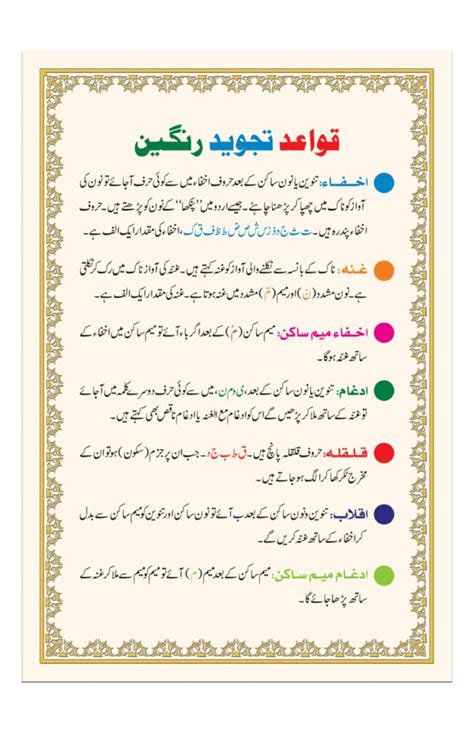 قواعد تجوید رنگین
اخفاء: تنوین یا نون ساکن کے بعد حروف اخفاء میں سے کوئی حرف آجائے تو نون کی
آواز کو ناک میں چھپا کر پڑھنا چاہئے۔ جیسے اردو میں ’’پنکھا‘‘ کے نون کو پڑھتے ہیں۔ حروف
اخفاء پندرہ ہیں۔ ت ث ج د ذ ز س ش ص ض ط ظ ف ق ک، اخفاء کی مقدار ایک الف ہے۔
غنہ: ناک کے بانسہ سے نکلنے والی آواز کو غنہ کہتے ہیں۔ غنہ کی آواز ناک میں رک کر نکلتی
ہے۔ نون مشدد (نّ) اور میم (مّ) مشدد میں غنہ ہوتا ہے۔ غنہ کی مقدار ایک الف ہے۔
اخفاء میم ساکن: میم ساکن (مْ) کے بعد اگر باء آئے تو میم ساکن میں اخفاء کے
ساتھ غنہ ہوگا۔
ادغام: تنوین یا نون ساکن کے بعد، ی و م ن، میں سے کوئی حرف دوسرے کلمہ میں آجائے
تو غنہ کے ساتھ ملا کر پڑھیں گے اس کو ادغام مع الغنہ یا ادغام ناقص بھی کہتے ہیں۔
قلقلہ: حروف قلقلہ پانچ ہیں۔ ق ط ب ج د۔ جب ان پر جزم (سکون) ہو تو ان کے
مخرج ٹکر کھا کر الگ ہو جاتے ہیں۔
اقلاب: تنوین و نون ساکن کے بعد ب آئے تو نون ساکن اور تنوین کو میم ساکن سے بدل
کر اخفاء کے ساتھ غنہ کریں گے۔
ادغام میم ساکن: میم ساکن کے بعد میم (م) آئے تو میم کو میم سے ملا کر غنہ کے
ساتھ پڑھا جائے گا۔